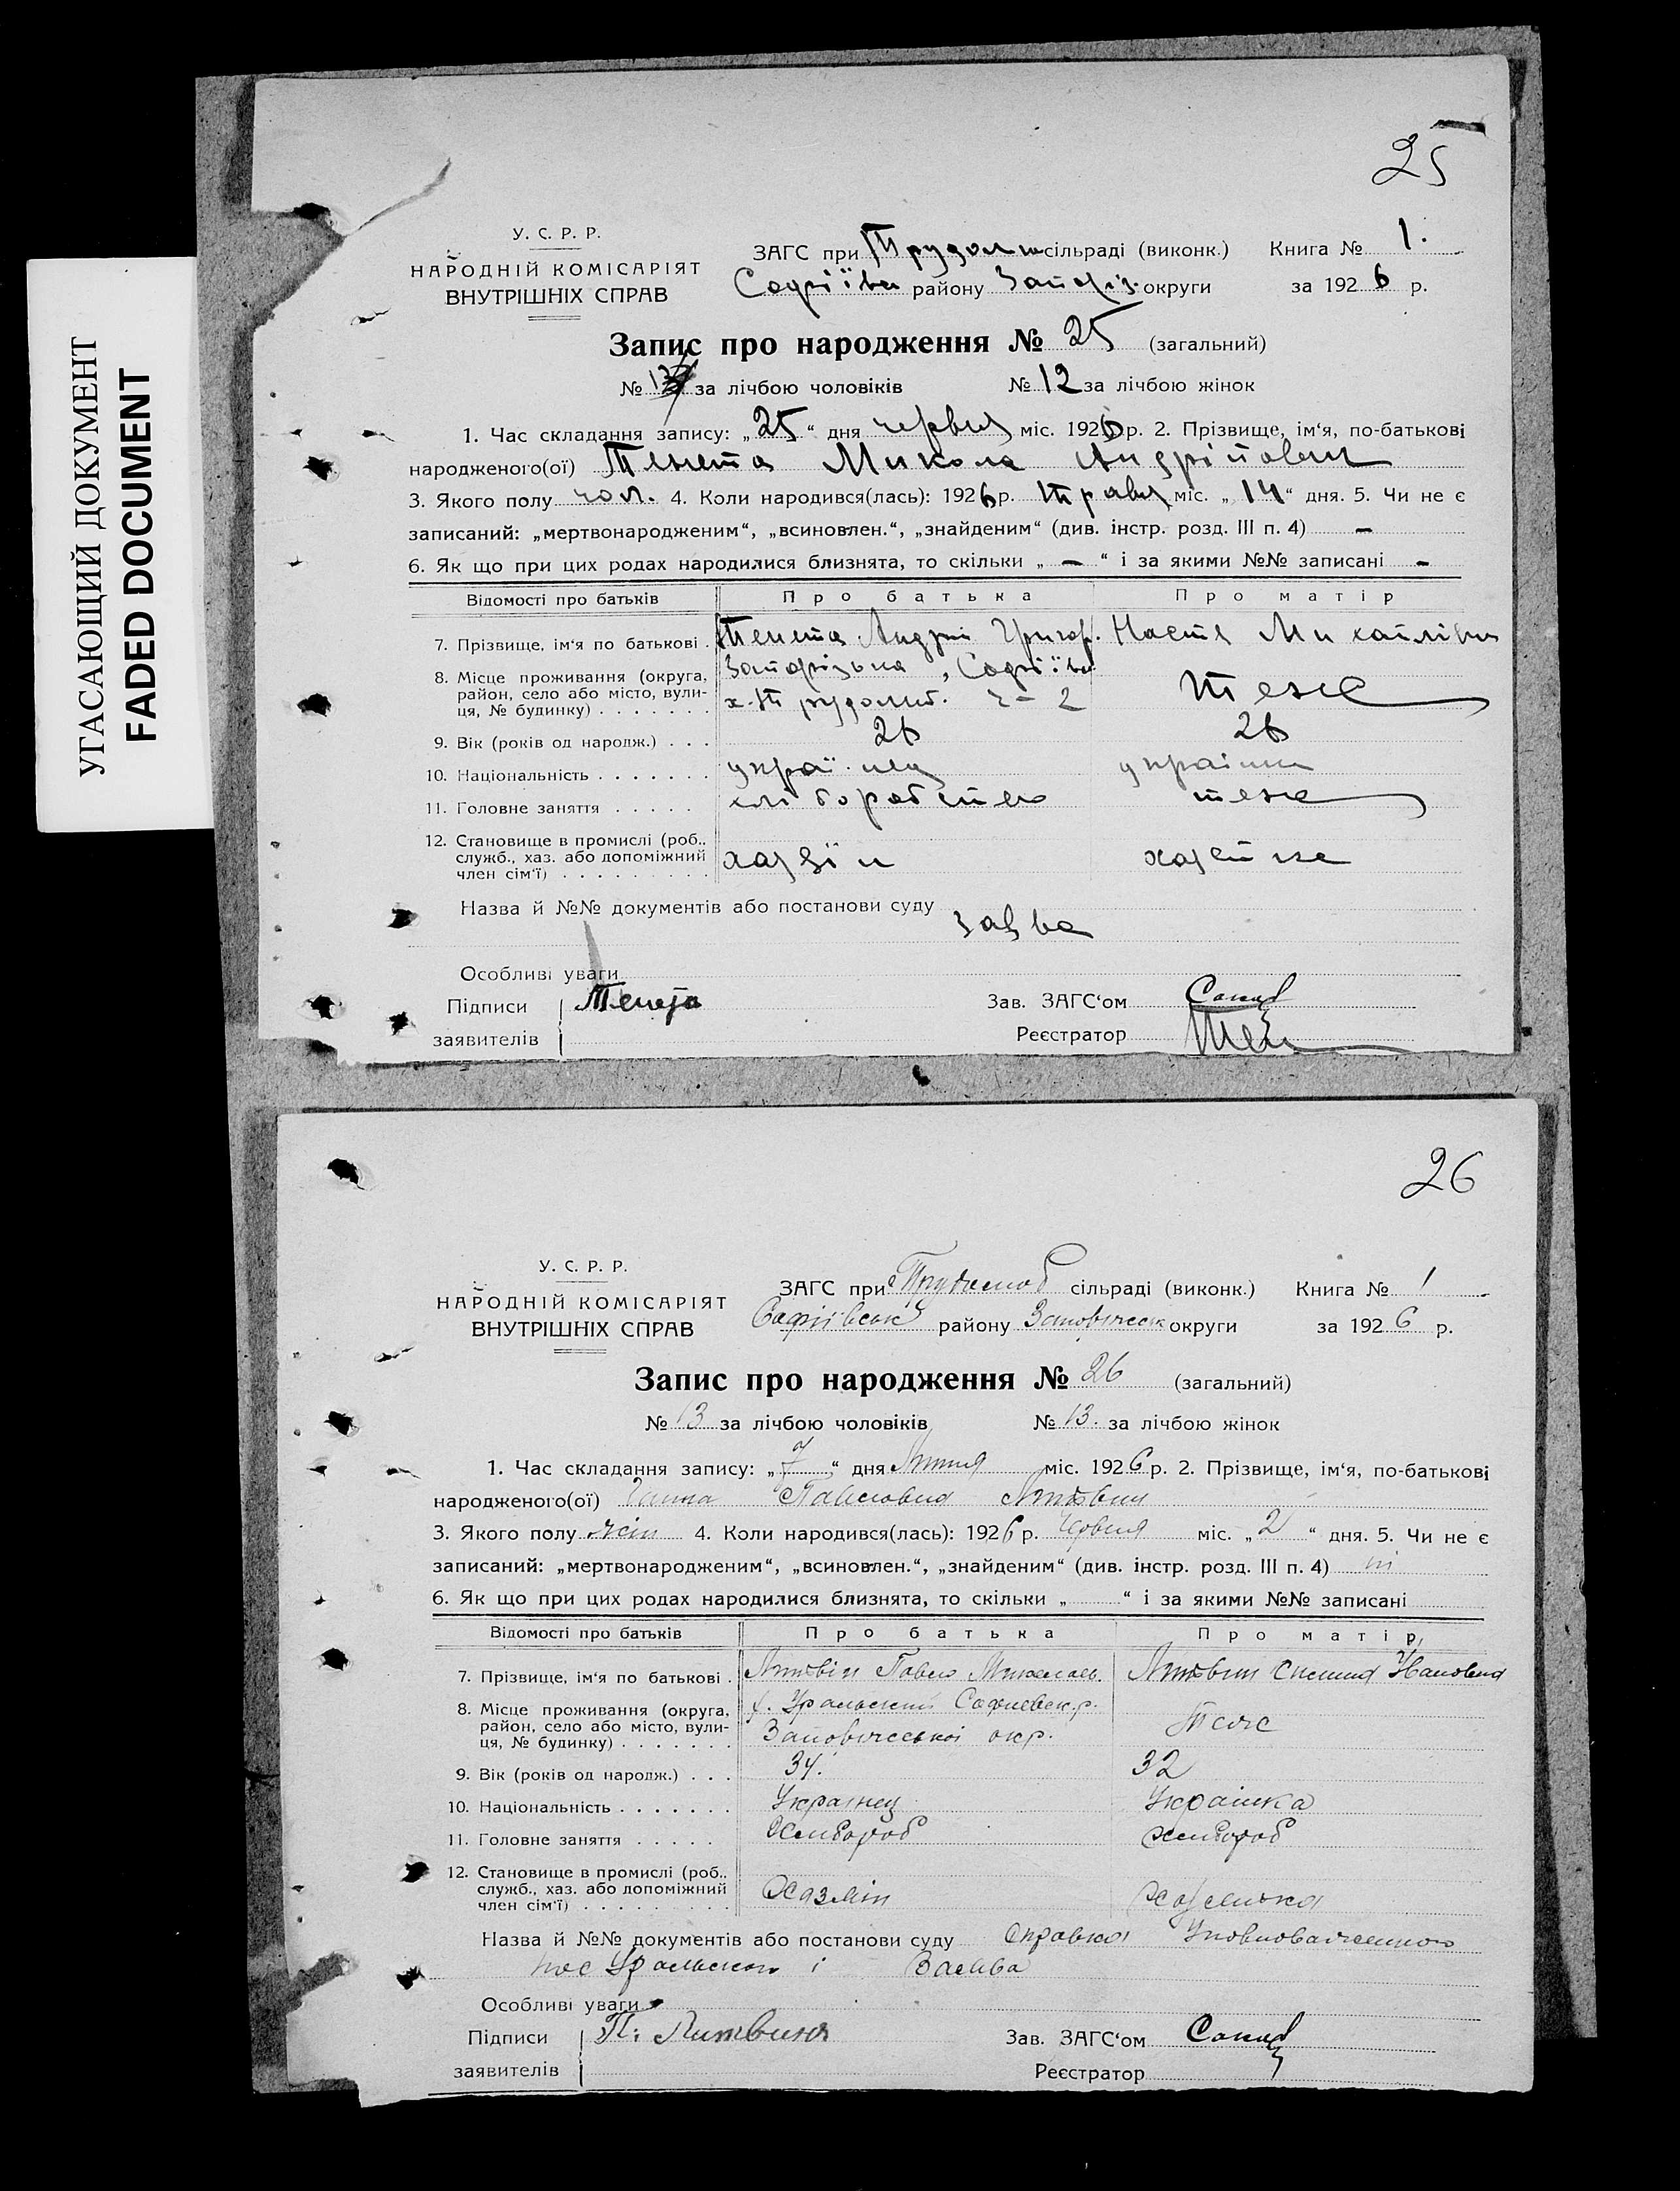 УГАСАЮЩИЙ ДОКУМЕНТ
FADED DOCUMENT
25
У. С. Р. Р.
НАРОДНІЙ КОМІСАРІЯТ
ВНУТРІШНІХ СПРАВ
ЗАГС при сільраді (виконк.) Книга № 1.
Софіїв району Запоріз. округи за 1926 р.
Запис про народження № 25 (загальний)
№ 13 за лічбою чоловіків № 12 за лічбою жінок
1. Час складання запису: „25“ дня червня міс. 1926 р. 2. Прізвище, ім‘я, по-батькові
народженого(ої) Тенета Микола Андрійович
3. Якого полу чол. 4. Коли народився(лась): 1926 р. травня міс. „14“ дня. 5. Чи не є
записаний: „мертвонародженим“, „всиновлен.“, „знайденим“ (див. інстр. розд. III п. 4) —
6. Як що при цих родах народилися близнята, то скільки „ — “ і за якими №№ записані —
Відомості про батьків Про батька Про матір
7. Прізвище, ім‘я по батькові . Тенета Андрій Григор. Настя Михайлівна
8. Місце проживання (округа, район, село або місто, вулиця, № будинку) . . . . . . . Запорізька, Софіїв теже
х. ч-2
9. Вік (років од народж.) . . . 26 26
10. Національність . . . . . . . україець українка
11. Головне заняття . . . . . хліборобство теже
12. Становище в промислі (роб.. служб., хаз. або допоміжний член сім‘ї) . . . . . . . . . хазяїн хазяйка
Назва й №№ документів або постанови суду
заява
Особливі уваги
Підписи Тенета Зав. ЗАГС‘ом
заявителів Реєстратор
26
У. С. Р. Р.
НАРОДНІЙ КОМІСАРІЯТ
ВНУТРІШНІХ СПРАВ
ЗАГС при Трудолюб сільраді (виконк.) Книга № 1
Софіївськ району округи за 1926 р.
Запис про народження № 26 (загальний)
№ 13 за лічбою чоловіків № 13. за лічбою жінок
1. Час складання запису: „7“ дня Липня міс. 1926 р. 2. Прізвище, ім‘я, по-батькові
народженого(ої) Ганна Павловна Литвин
3. Якого полу жін 4. Коли народився(лась): 1926 р. Червня міс. „2“ дня. 5. Чи не є
записаний: „мертвонародженим“, „всиновлен.“, „знайденим“ (див. інстр. розд. III п. 4) ні
6. Як що при цих родах народилися близнята, то скільки „ “ і за якими №№ записані
Відомості про батьків Про батька Про матір
7. Прізвище, ім‘я по батькові . Литвін Павло Миколаєв. Литвин Ивановна
8. Місце проживання (округа, район, село або місто, вулиця, № будинку) . . . . . . . х. Уральский Софиевск. р. Теже
окр.
9. Вік (років од народж.) . . . 34. 32
10. Національність . . . . . . . Українец Українка
11. Головне заняття . . . . . Хлибороб Хлибороб
12. Становище в промислі (роб.. служб., хаз. або допоміжний член сім‘ї) . . . . . . . . . Хазяін Хазяйка
Назва й №№ документів або постанови суду Справка Уповноваженного
пос Уральского і Заява
Особливі уваги
Підписи П. Литвин Зав. ЗАГС‘ом
заявителів Реєстратор